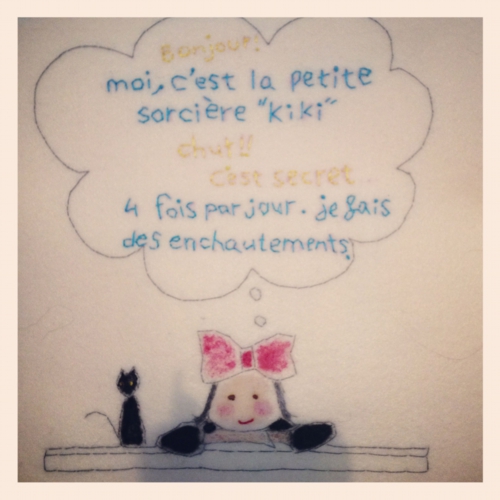 Bonjour!
moi, c'est la petite
sorcière "kiki"
chut!!
c'est secret...
4 fois par jour. je fais
des enchautements.